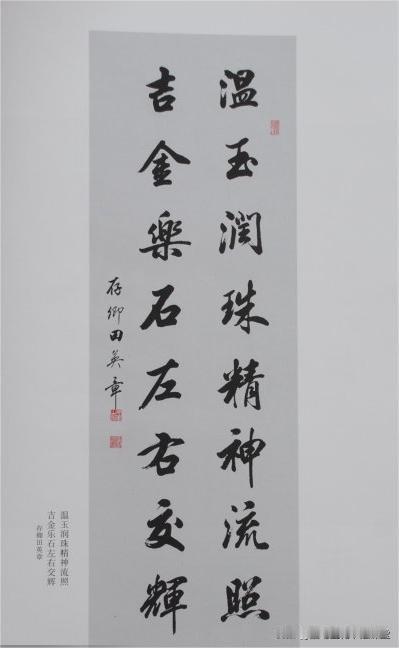 温玉润珠精神流照
吉金樂石左右交輝
存卿田英章
温玉润珠精神流照
吉金乐石左右交辉
存卿田英章